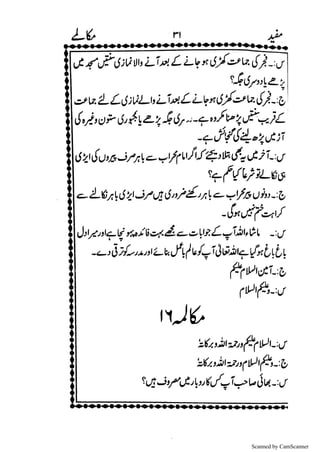 مفید ۳۱ مکالمے
س:۔ فجر کی جماعت کھڑی ہو جانے کے بعد آنے والا نمازی سنتیں مسجد میں
پڑھے یا دوسری جگہ؟
ج:۔ فجر کی جماعت کھڑی ہو جانے کے بعد آنے والے نمازی کے لئے جماعت
کے قریب سنتیں پڑھنا مکروہ ہے۔ دوسری جگہ پڑھے یا بمجبوری ستون وغیرہ کی
آڑ میں پڑھ لینے کی گنجائش ہے۔
س:۔ آخر میں یہ بھی بتلا دیجئے کہ اگر امام محراب سے باہر صرف پیروں کی ایڑی
ہی نکالے تو شرعاً کیا حکم ہے؟
ج:۔ دونوں پیر محراب سے باہر رکھنے ضروری ہیں صرف ایڑی باہر نکالنے سے
کراہت ختم نہیں ہوگی۔
س:۔ ماشاءاللہ آپ کے جوابات سے مجھے بہت فائدہ پہونچا ہے اور میرا دل
باغ باغ ہو گیا ہے اللہ تعالیٰ آپ کو عالم باعمل بنائے اور مدرسہ کو ترقی دے۔
ج:۔ آمین السلام علیکم
س:۔ وعلیکم السلام
مکالمہ ۱۶
س:۔ السلام علیکم ورحمۃ اللہ وبرکاتہٗ
ج:۔ وعلیکم السلام ورحمۃ اللہ وبرکاتہٗ
س:۔ بھائی صاحب آپ کس کاروبار میں مصروف ہیں؟
Scanned by CamScanner